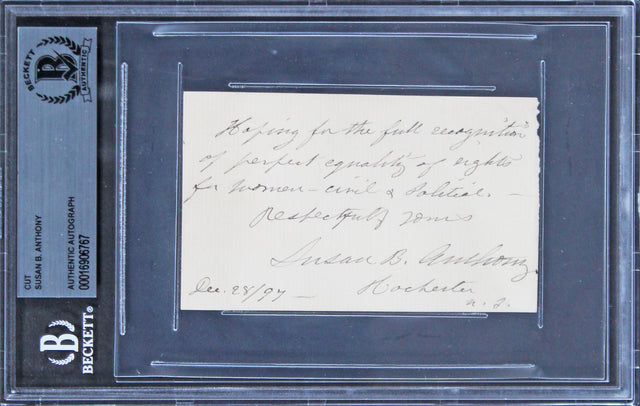 BECKETT
AUTHENTIC
CUT
SUSAN B. ANTHONY
AUTHENTIC AUTOGRAPH
00016906767
BECKETT
Hoping for the full recognition
of perfect equality of rights
for women - civil & political. -
Respectfully yours
Susan B. Anthony
Dec. 28/97 - Rochester
N. Y.